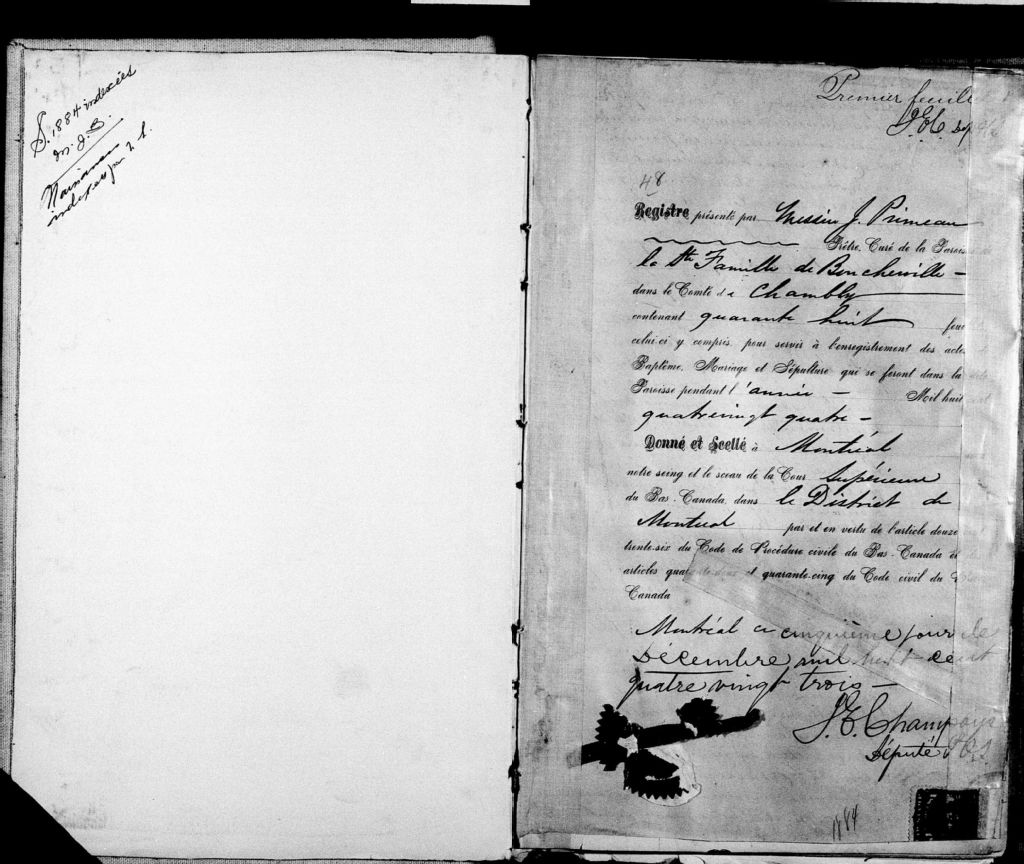 S. 1884 indexées
M. J. B.
indexés par
Premier feuill
48
Registre présenté par Messire J. Primeau
Prêtre, Curé de la Parois
la Ste Famille de Boucherville –
dans le Comté de Chambly
contenant quarante huit feui
celui-ci y compris, pour servir à l'enregistrement des actes
Baptême, Mariage et Sépulture qui se feront dans la dite
Paroisse pendant l'année – Mil huit cent
quatrevingt quatre –
Donné et Scellé à Montréal
notre seing et le sceau de la Cour Supérieure
du Bas-Canada, dans le District de
Montreal par et en vertu de l'article douze
trente-six du Code de Procédure civile du Bas-Canada et des
articles quarante-deux et quarante-cinq du Code civil du
Canada
Montréal ce cinquième jour de
Décembre mil huit cent
quatre vingt trois –
J. E. Champ
Député
1884